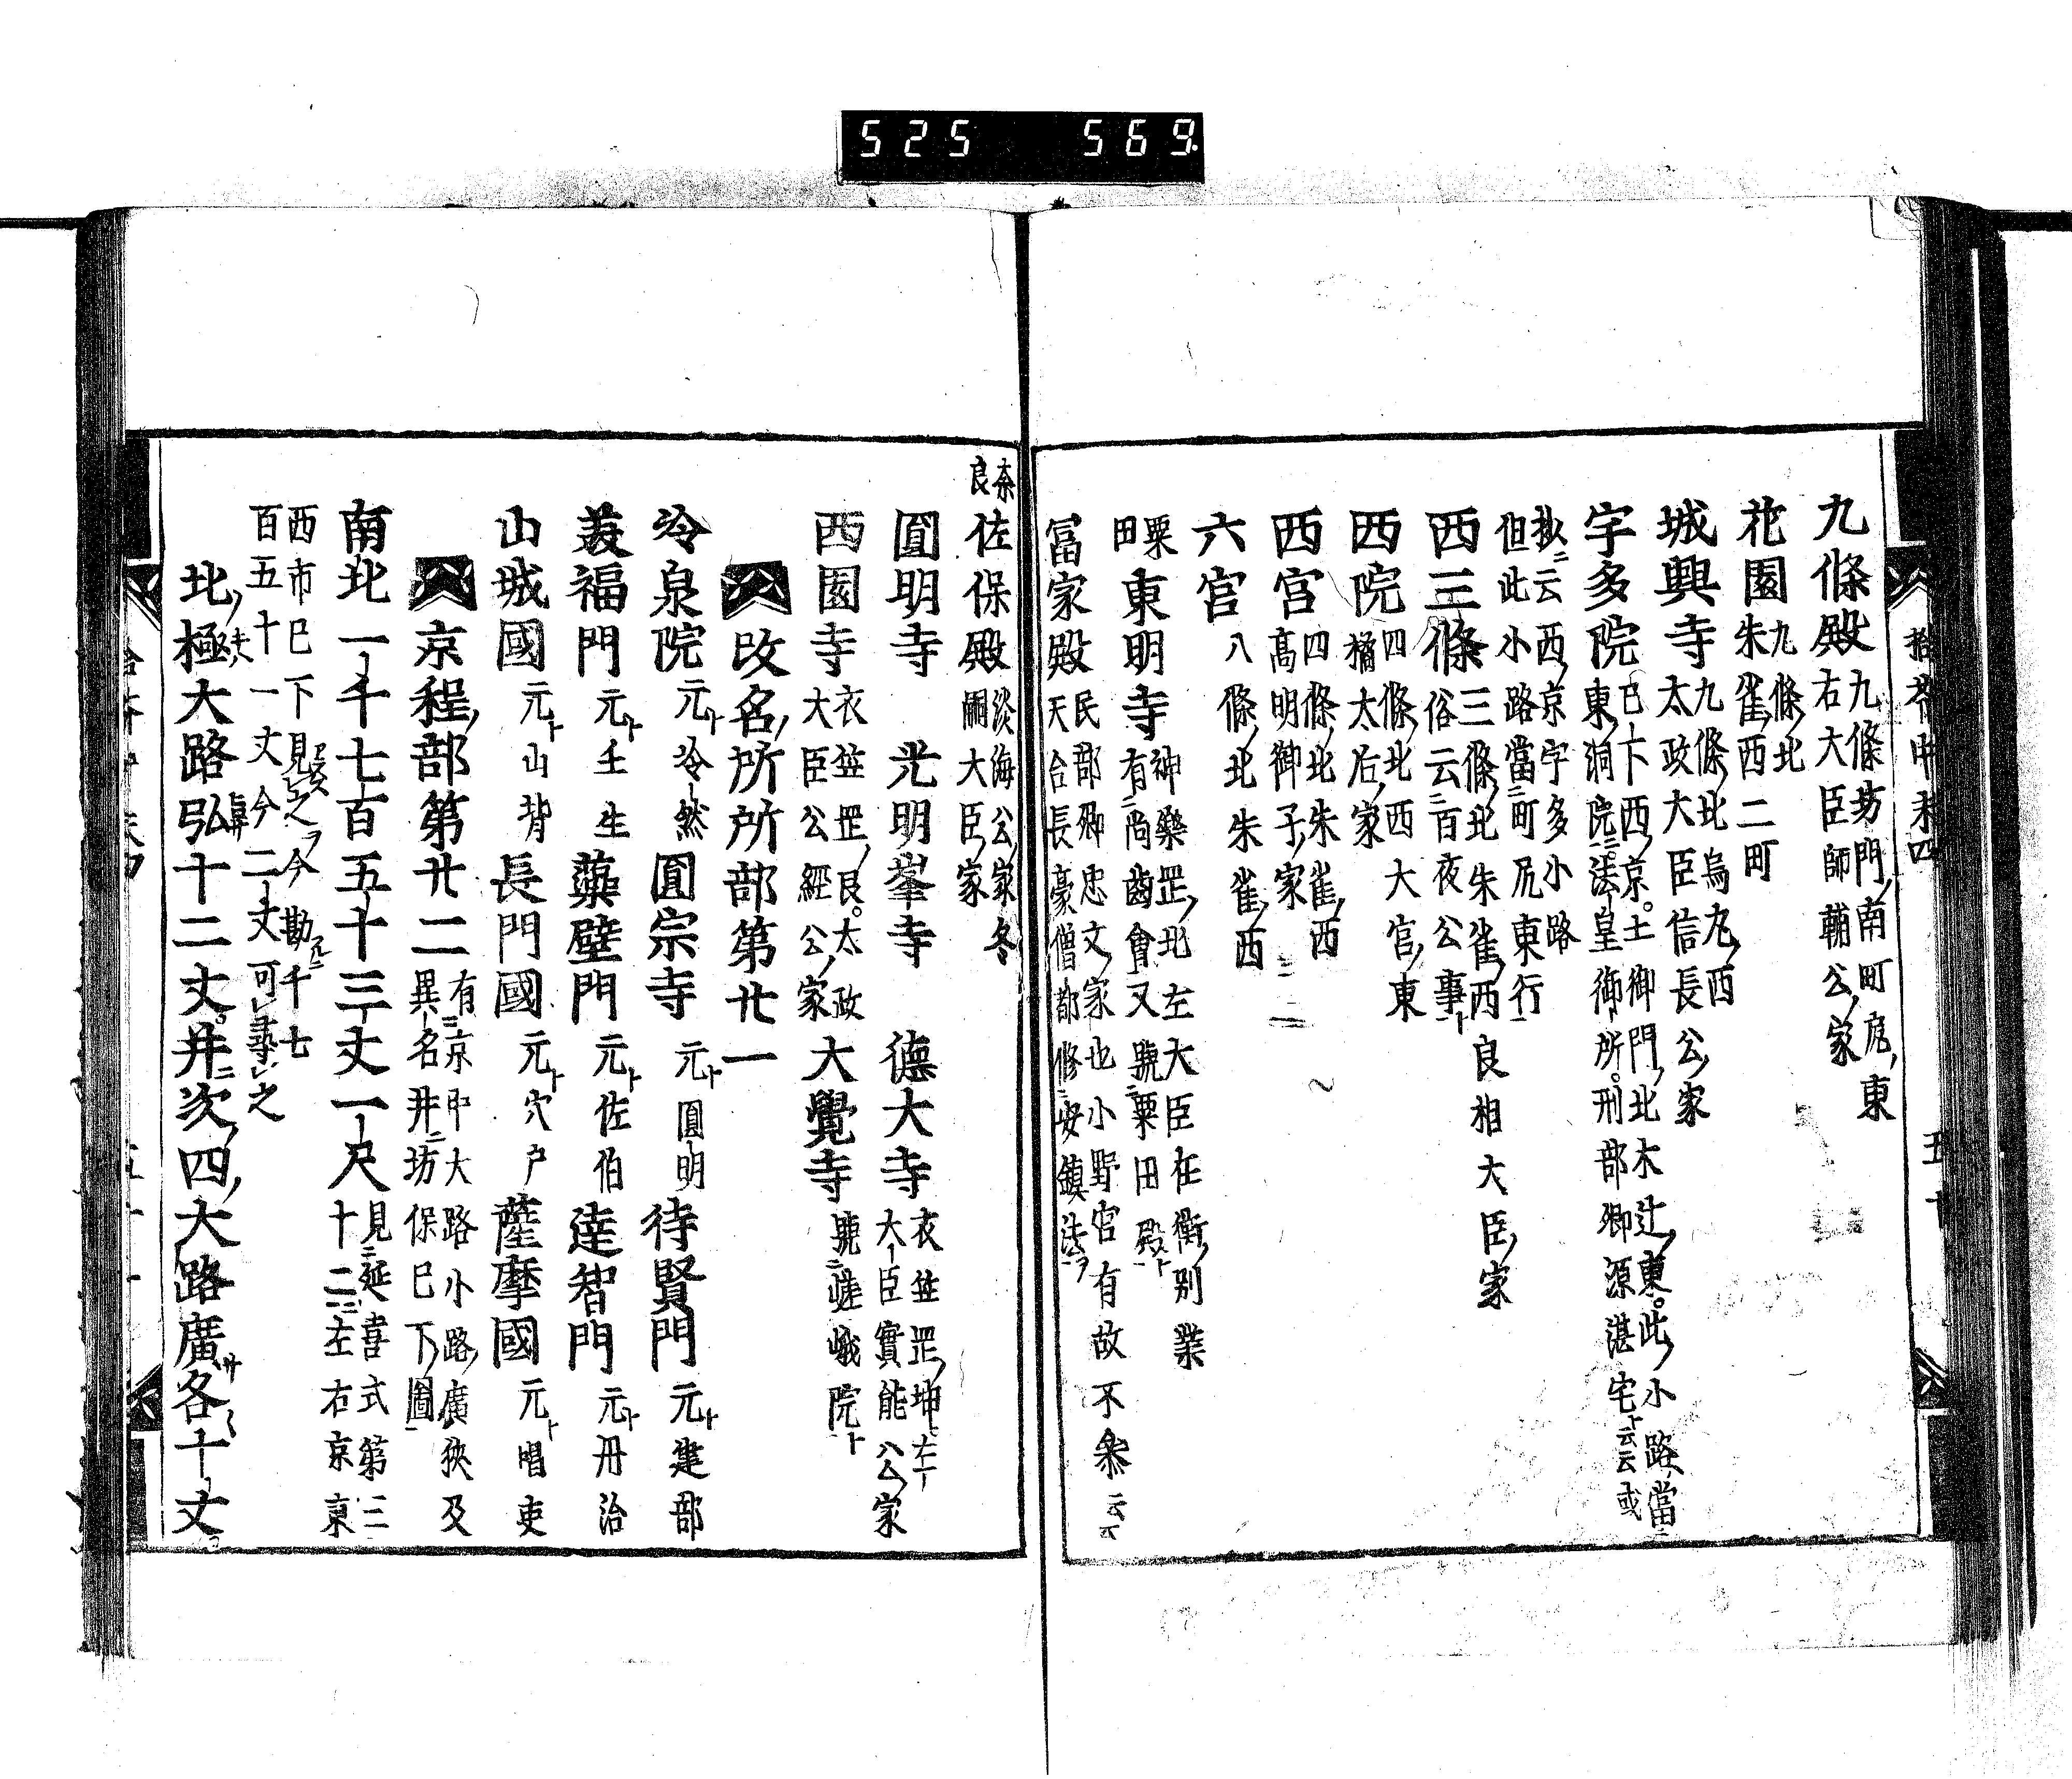 525 569
拾芥中末四 五十
九條殿 九條坊門南町尻東
右大臣師輔公家
花園 九條北
朱雀西二町
城興寺 九條北烏丸西
太政大臣信長公家
宇多院 已下西京土御門北木辻東此小路當
東洞院法皇御所刑部卿源湛宅云云或
抄云西京宇多小路
但此小路當町尻東行
西三條 三條北朱雀西良相大臣家
俗云百夜公事
西院 四條北西大宮東
橘太后家
西宮 四條北朱雀西
高明御子家
六宮 八條北朱雀西
粟田 東明寺 神樂罡北左大臣在衡別業
有尚齒會又號粟田殿
冨家殿 民部卿忠文家也小野宮有故不叅云云
天台長豪僧都修安鎮法
奈良 佐保殿 淡海公家冬
嗣大臣家
圓明寺 光明峯寺 德大寺 衣笠罡坤左
大臣實能公家
西園寺 衣笠罡艮太政
大臣公經公家 大覺寺 號嵯峨院
改名所所部第廿一
冷泉院 元冷然 圓宗寺 元圓明 待賢門 元建部
美福門 元壬生 藻壁門 元佐伯 達智門 元丹治
山城國 元山背 長門國 元穴戸 薩摩國 元唱更
京程部第廿二 有京中大路小路廣狹及
異名并坊保已下圖
南北一千七百五十三丈一尺 見延喜式第三
十二左右京東
西市已下見之今勘千七
百五十一丈今二丈可尋之
北極大路弘十二丈并次四大路廣各十丈